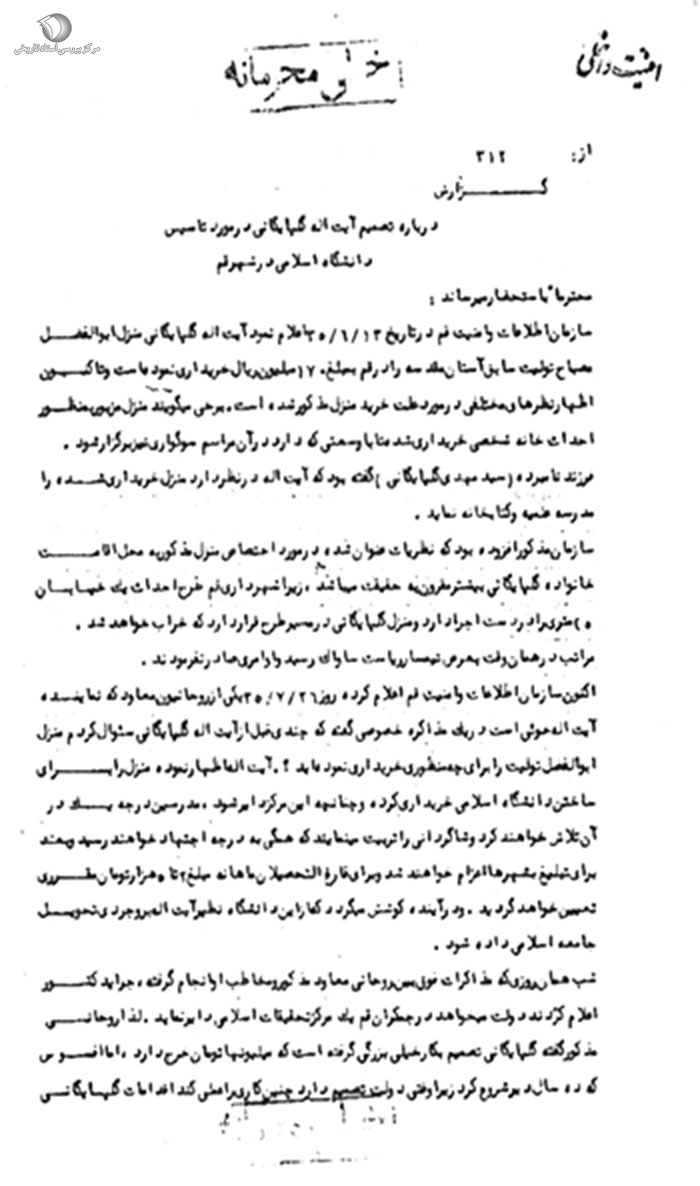 مرکز بررسی اسناد تاریخی
امنیت داخلی
خیلی محرمانه
از: ۳۱۲
گزارش
درباره تصمیم آیت اله گلپایگانی درمورد تاسیس
دانشگاه اسلامی در شهر قم
محترما" باستحضار میرساند :
سازمان اطلاعات و امنیت قم در تاریخ ۳۵/۶/۱۳ اعلام نمود آیت اله گلپایگانی منزل ابوالفضل
مصباح تولیت سابق آستان مقدسه را در قم بمبلغ ۱۷۰ میلیون ریال خریداری نموده است و تاکنون
اظهارنظرهای مختلفی در مورد علت خرید منزل مذکور شده است . برخی میگویند منزل مزبور بمنظور
احداث خانه شخصی خریداری شده تا با وسعتی که دارد در آن مراسم سوگواری نیز برگزار شود .
فرزند نامبرده (سید مهدی گلپایگانی) گفته بود که آیت اله در نظر دارد منزل خریداری شده را
مدرسه علمیه و کتابخانه نماید .
سازمان مذکور افزوده بود که نظریات عنوان شده در مورد اختصاص منزل مذکور به محل اقامت
خانواده گلپایگانی بیشتر مقرون به حقیقت میباشد ، زیرا شهرداری قم طرح احداث یک خیابان
متری را در دست اجرا دارد و منزل گلپایگانی در مسیر طرح قرار دارد که خراب خواهد شد .
مراتب در همان وقت بعرض تیمسار ریاست ساواک رسید و اوامری صادر نفرمودند .
اکنون سازمان اطلاعات و امنیت قم اعلام کرده روز ۳۵/۷/۲۶ یکی از روحانیون معاود که نماینده
آیت اله خوئی است در یک مذاکره خصوصی گفته که چندی قبل از آیت اله گلپایگانی سئوال کردم منزل
ابوالفضل تولیت را برای چه منظوری خریداری نموده اید ؟ . آیت اله اظهار نموده منزل را برای
ساختن دانشگاه اسلامی خریداری کرده و چنانچه این مرکز دایر شود ، مدرسین درجه یک در
آن تلاش خواهند کرد و شاگردانی را تربیت مینمایند که همگی به درجه اجتهاد خواهند رسید و بعد
برای تبلیغ بشهرها اعزام خواهند شد و برای فارغ التحصیلان ماهانه مبلغ ۲ تا ۵ هزار تومان مقرری
تعیین خواهد گردید . و در آینده کوشش میگردد که از این دانشگاه نظیر آیت اله بروجردی تحویل
جامعه اسلامی داده شود .
شب همان روزی که مذاکرات فوق بین روحانی معاود مذکور و مخاطب او انجام گرفته ، جراید کشور
اعلام کردند دولت میخواهد در جمکران قم یک مرکز تحقیقات اسلامی دایر نماید . لذا روحانی
مذکور گفته گلپایگانی تصمیم بکار خیلی بزرگی گرفته است که میلیونها تومان خرج دارد ، اما افسوس
که ده سال دیر شروع کرد زیرا وقتی دولت تصمیم دارد چنین کاری را عملی کند اقدامات گلپایگانی